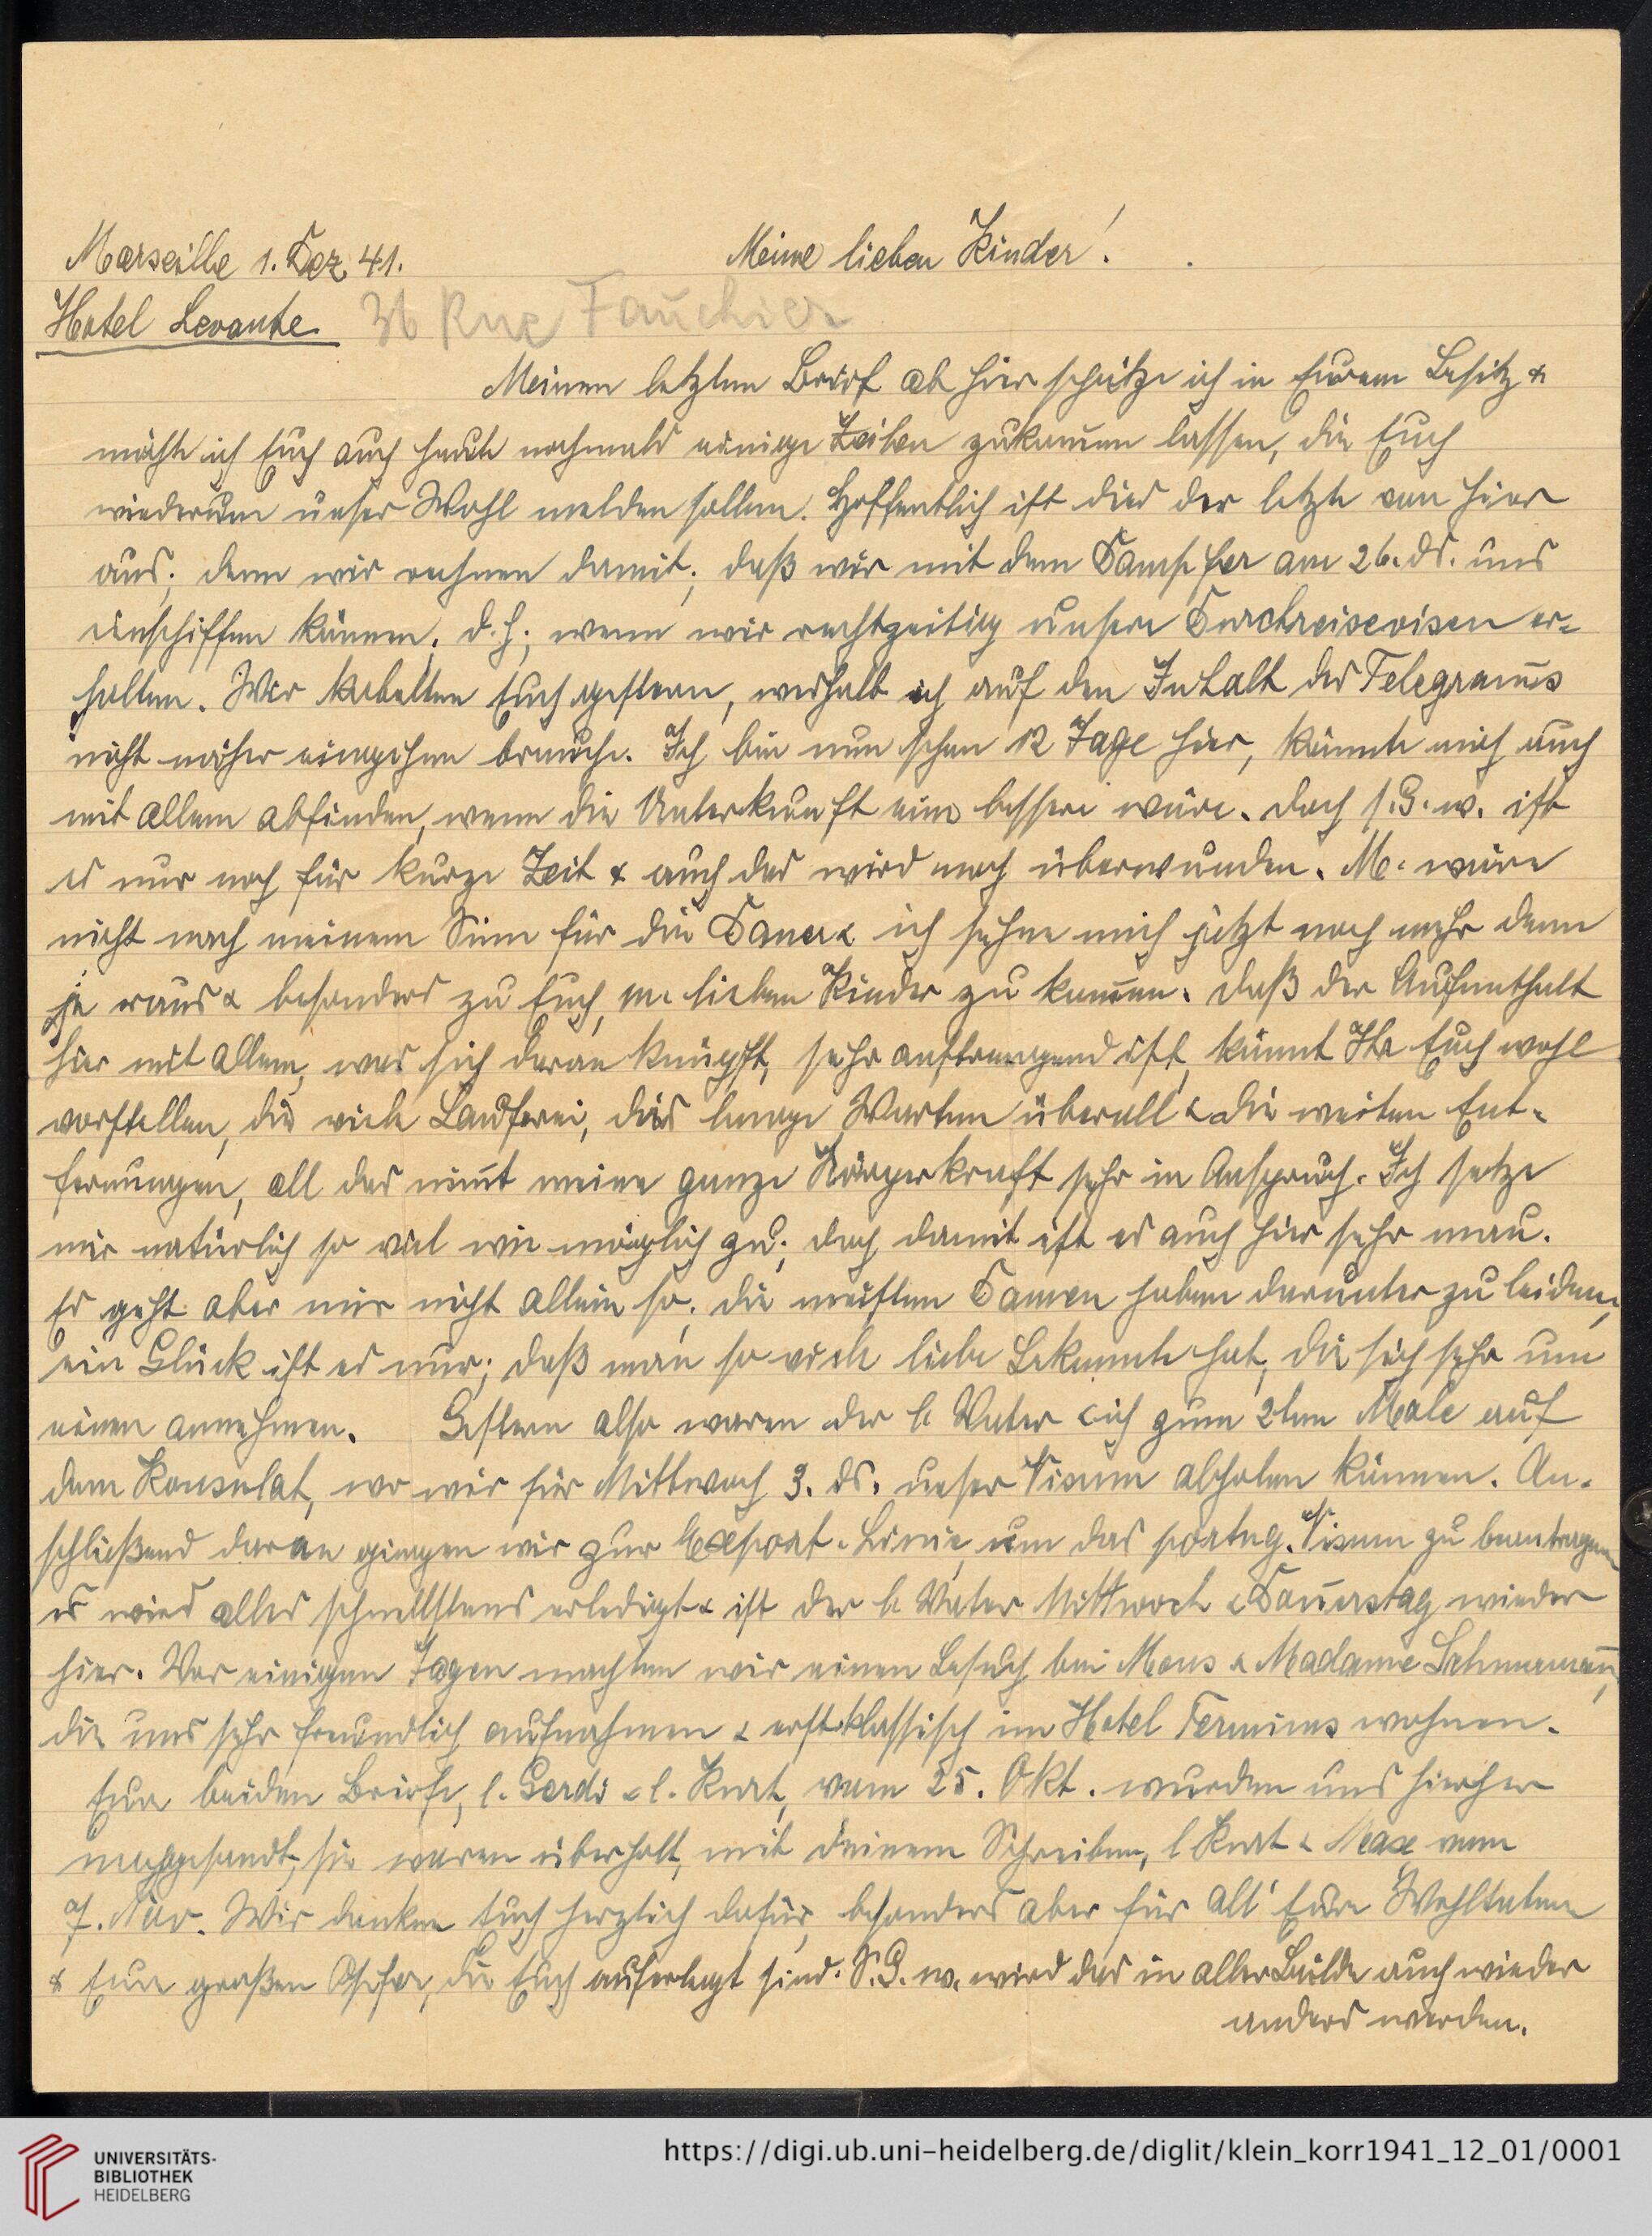 Marseille 1. Dez. 41.
Meine lieben Kinder!
Hotel Levante 36 Rue Fauchier
Meinen letzten Brief ab hier schätze ich in Eurem Besitz &
möchte ich Euch auch heute nochmals einige Zeilen zukom̄en lassen, die Euch
wiederum unser Wohl melden sollen. Hoffentlich ist dies der letzte von hier
aus; denn wir rechnen damit, daß wir mit dem Dampfer am 26. ds. uns
einschiffen können, d.h.; wenn wir rechtzeitig unsere Durchreisevisen er=
halten. Wir kabelten Euch gestern, weshalb ich auf den Inhalt des Telegram̄s
nicht näher eingehen brauche. Ich bin nun schon 12 Tage hier, könnte mich auch
mit allem abfinden, wenn die Unterkunft eine bessere wäre. Doch s. G. w. ist
es nur noch für kurze Zeit & auch das wird noch überwunden. M. wäre
nicht nach meinem Sinn für die Dauer & ich sehne mich jetzt noch mehr denn
je raus & besonders zu Euch, m. lieben Kinder zu kom̄en. Daß der Aufenthalt
hier mit allem, was sich daran knüpft, sehr anstrengend ist, könnt Ihr Euch wohl
vorstellen, die viele Lauferei, das lange Warten überall & die weiten Ent=
fernungen, all das nim̄t meine ganze Körperkraft sehr in Anspruch. Ich setze
mir natürlich so viel wie möglich zu; doch damit ist es auch hier sehr mau.
Es geht aber mir nicht allein so, die meisten Damen haben darunter zu leiden,
ein Glück ist es nur; daß man so viele liebe Bekannte hat, die sich sehr um
einen annehmen. Gestern also waren der l. Vater & ich zum 2ten Male auf
dem Konsulat, wo wir für Mittwoch 3. ds. unser Visum abholen können. An=
schließend daran gingen wir zur Export-Linie, um das portug. Visum zu beantragen
es wird alles schnellstens erledigt & ist der l. Vater Mittwoch & Don̄erstag wieder
hier. Vor einigen Tagen machten wir einen Besuch bei Mons & Madame
die uns sehr freundlich aufnahmen & erstklassisch im Hotel Terminus wohnen.
Eure beiden Briefe, l. Gerdi & l. Kurt, vom 25. Okt. wurden uns hierher
nachgesandt, sie waren überholt, mit Deinem Schreiben, l. Kurt & Max vom
7. Nov. Wir danken Euch herzlich dafür, besonders aber für all' Eure Wohltaten
& Eure großen Opfer, die Euch auferlegt sind. S. G. w. wird das in aller Bälde auch wieder
anders werden.
UNIVERSITÄTS-
BIBLIOTHEK
HEIDELBERG
https://digi.ub.uni-heidelberg.de/diglit/klein_korr1941_12_01/0001